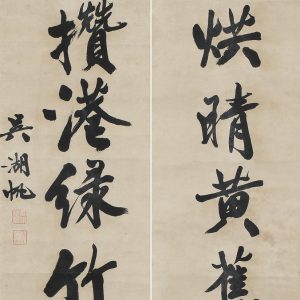 烘晴黄蕉
攢港緑竹
吴湖帆